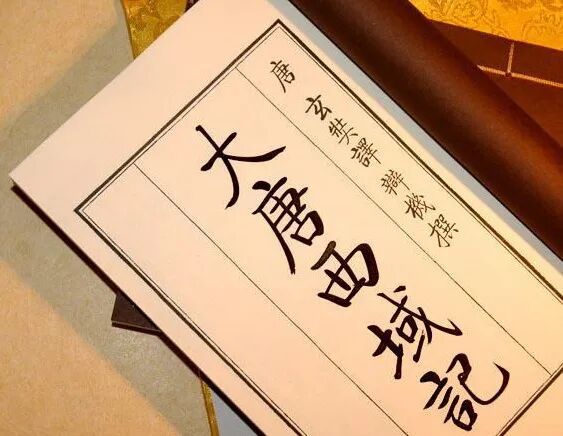 唐 玄奘譯 辯機撰
大唐西域記